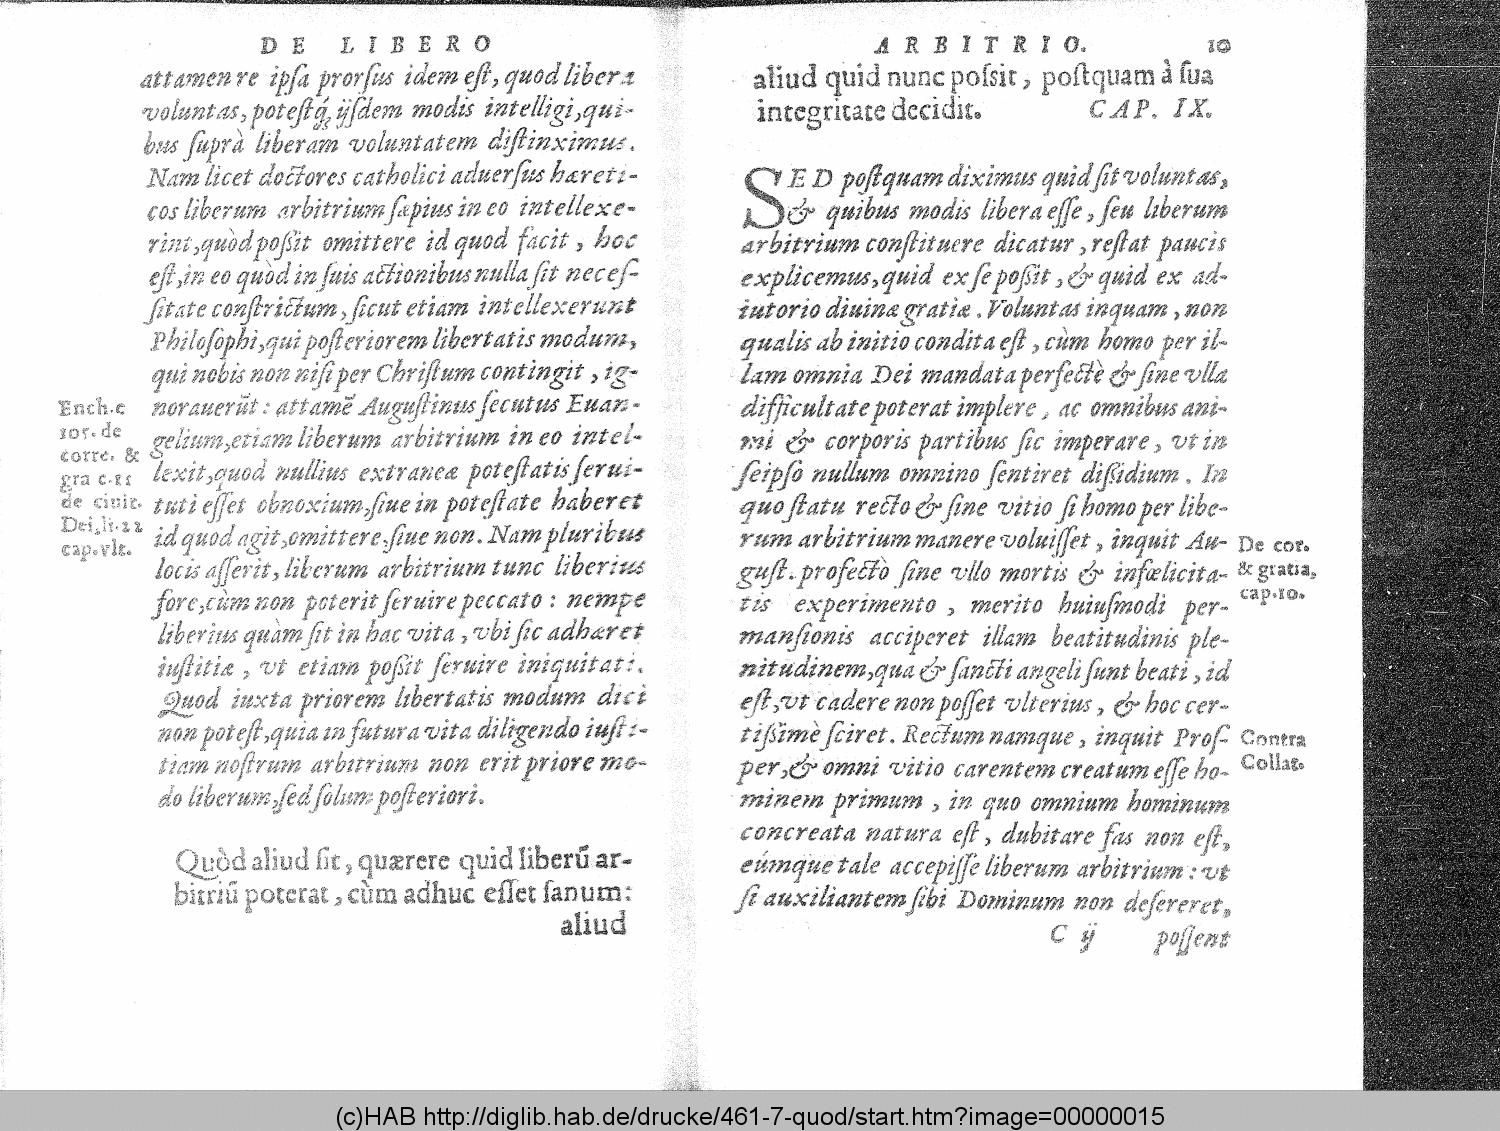 DE LIBERO
attamen re ipſa prorſus idem eſt, quod libera
voluntas, poteſtq́; ijſdem modis intelligi, qui-
bus ſuprà liberam voluntatem diſtinximus.
Nam licet doctores catholici aduerſus hæreti-
cos liberum arbitrium ſæpius in eo intellexe-
rint, quòd poßit omittere id quod facit, hoc
eſt, in eo quòd in ſuis actionibus nulla ſit neceſ-
ſitate conſtrictum, ſicut etiam intellexerunt
Philoſophi, qui poſteriorem libertatis modum,
qui nobis non niſi per Chriſtum contingit, ig-
norauerũt: attamẽ Auguſtinus ſecutus Euan-
gelium, etiam liberum arbitrium in eo intel-
lexit, quod nullius extraneæ poteſtatis ſerui-
tuti eſſet obnoxium, ſiue in poteſtate haberet
id quod agit, omittere, ſiue non. Nam pluribus
locis aſſerit, liberum arbitrium tunc liberius
fore, cùm non poterit ſeruire peccato: nempe
liberius quàm ſit in hac vita, vbi ſic adhæret
iuſtitiæ, vt etiam poßit ſeruire iniquitati.
Quod iuxta priorem libertatis modum dici
non poteſt, quia in futura vita diligendo iuſti-
tiam noſtrum arbitrium non erit priore mo-
do liberum, ſed ſolum poſteriori.
Ench.c
105. de
corre. &
gra c.11
de ciuit.
Dei, li.22
cap.vlt.
Quòd aliud ſit, quærere quid liberũ ar-
bitriũ poterat, cùm adhuc eſſet ſanum:
aliud
ARBITRIO. 10
aliud quid nunc poſsit, poſtquam à ſua
integritate decidit. CAP. IX.
SED poſtquam diximus quid ſit voluntas,
& quibus modis libera eſſe, ſeu liberum
arbitrium conſtituere dicatur, reſtat paucis
explicemus, quid ex ſe poßit, & quid ex ad-
iutorio diuinæ gratiæ. Voluntas inquam, non
qualis ab initio condita eſt, cùm homo per il-
lam omnia Dei mandata perfectè & ſine vlla
difficultate poterat implere, ac omnibus ani-
mi & corporis partibus ſic imperare, vt in
ſeipſo nullum omnino ſentiret dißidium. In
quo ſtatu recto & ſine vitio ſi homo per libe-
rum arbitrium manere voluiſſet, inquit Au-
guſt. profectò ſine vllo mortis & infœlicita-
tis experimento, merito huiuſmodi per-
manſionis acciperet illam beatitudinis ple-
nitudinem, qua & ſancti angeli ſunt beati, id
eſt, vt cadere non poſſet vlterius, & hoc cer-
tißimè ſciret. Rectum namque, inquit Proſ-
per, & omni vitio carentem creatum eſſe ho-
minem primum, in quo omnium hominum
concreata natura eſt, dubitare fas non eſt,
eúmque tale accepiſſe liberum arbitrium: vt
ſi auxiliantem ſibi Dominum non deſereret,
De cor.
& gratia,
cap.10.
Contra
Collat.
C ij poſſent
(c)HAB http://diglib.hab.de/drucke/461-7-quod/start.htm?image=00000015